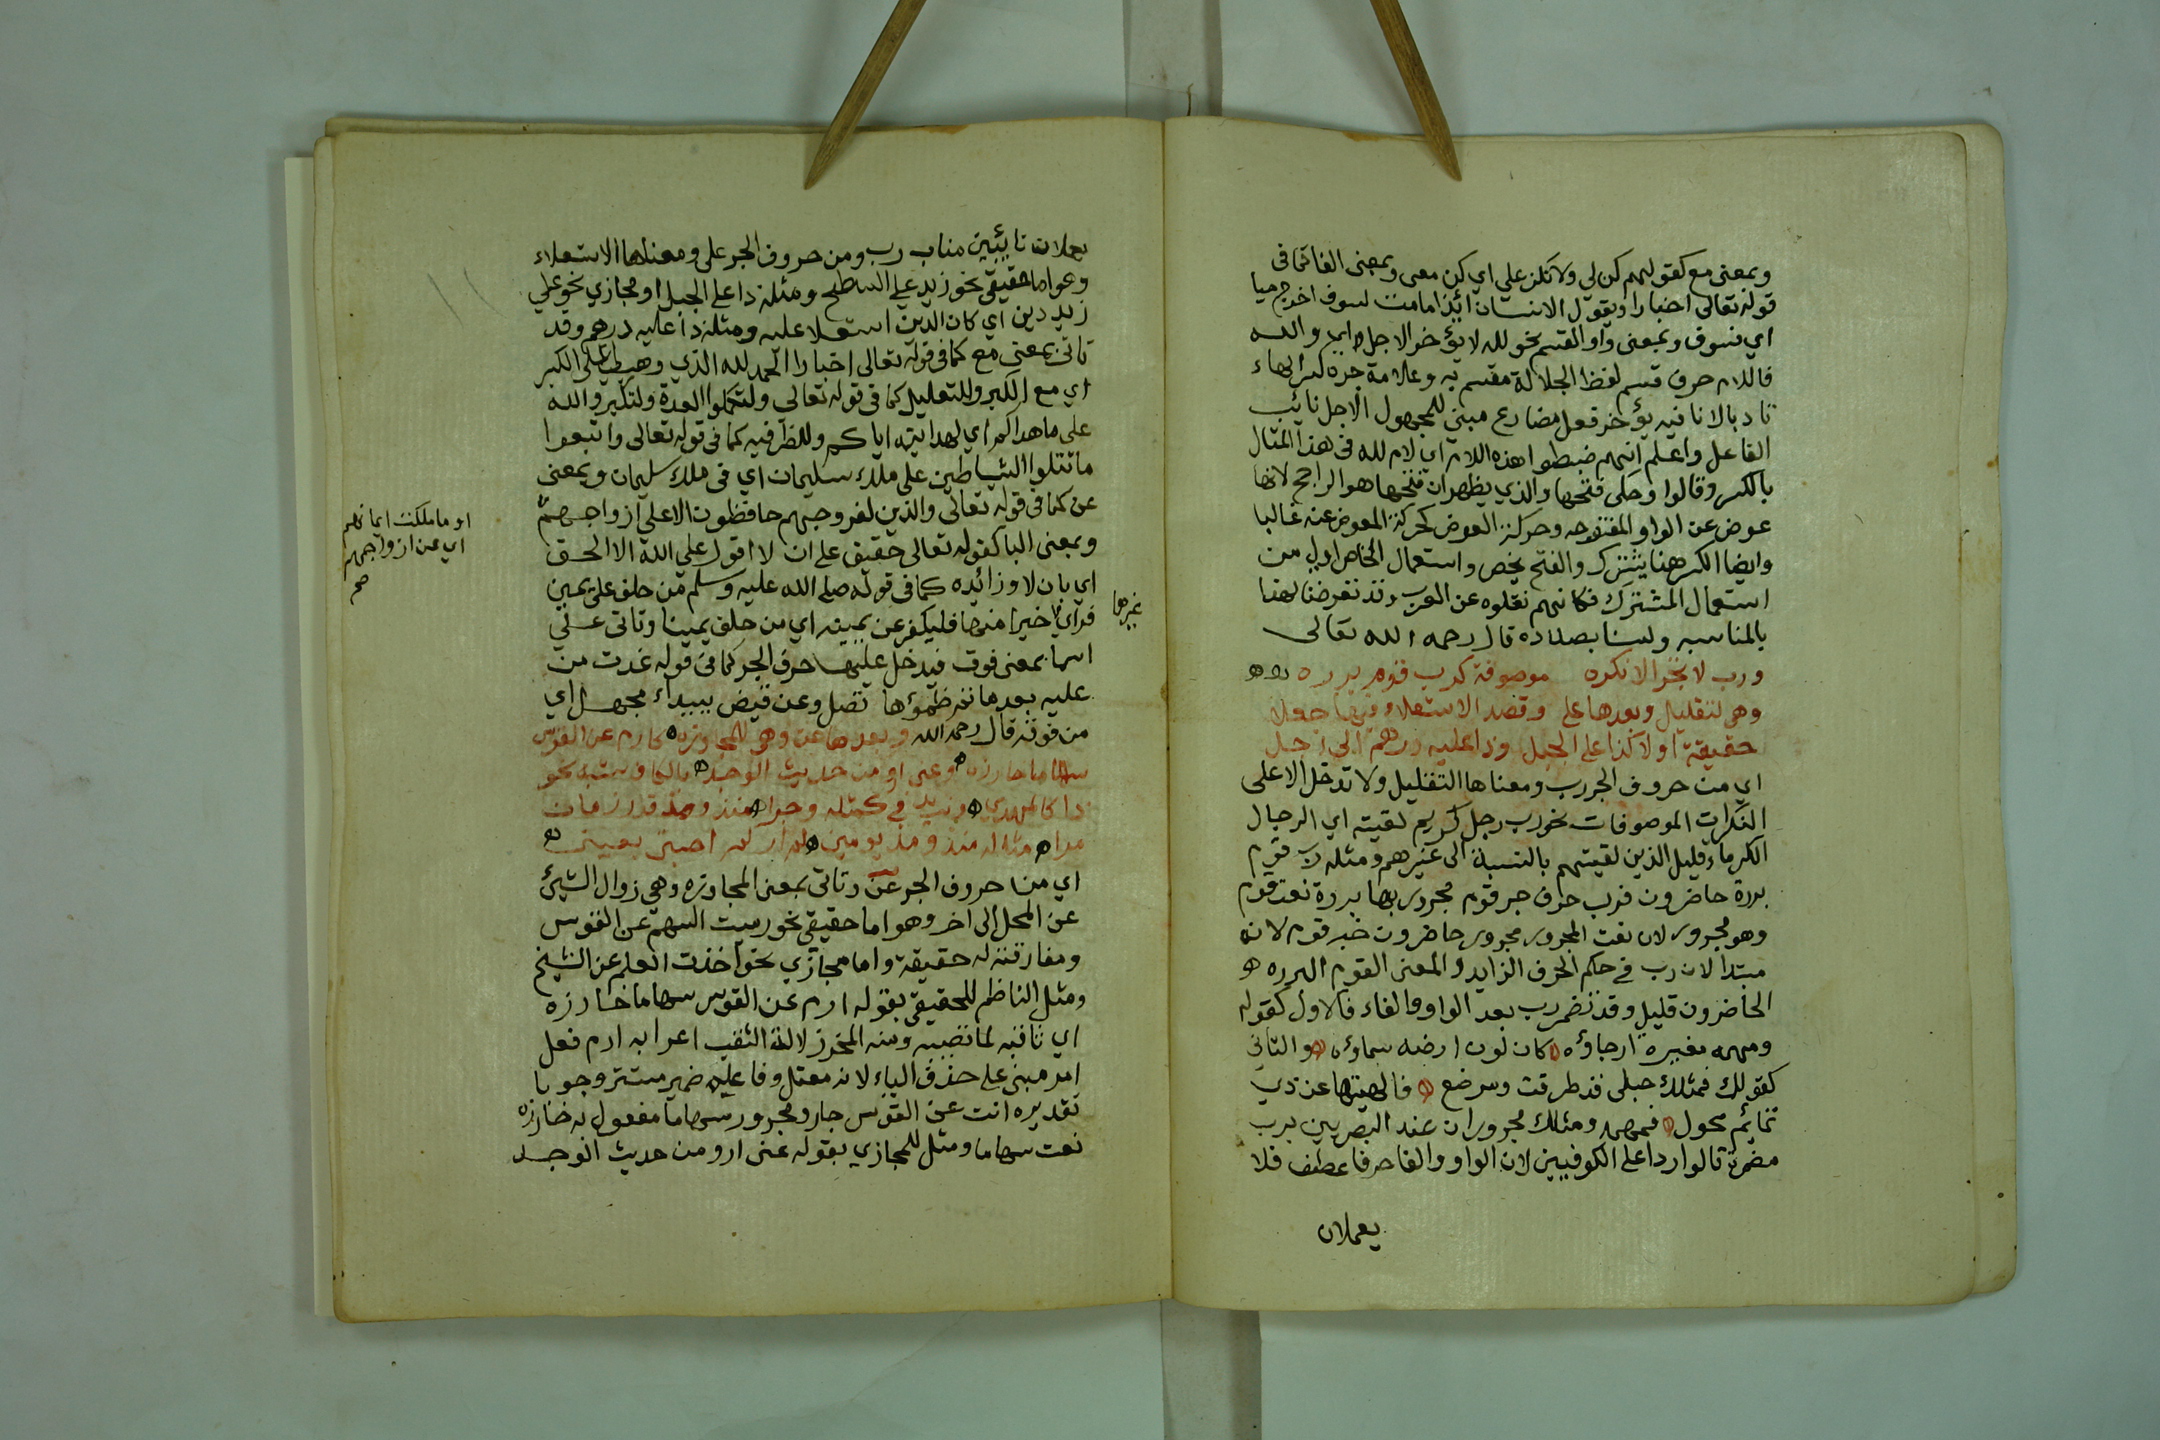 وبمعنى مع كقولهم كن لي ولا تكن علي اي كن معي وبمعنى الفا كما في
قوله تعالى اخبارا ويقول الانسان ائذا ما مت لسوف اخرج حيا
اي فسوف وبمعنى واو القسم نحو لله لا يؤخر الاجل اي والله
فاللام حرف قسم لفظ الجلالة مقسم به وعلامة جره كسر الهاء
تادبا لا نافيه يؤخر فعل مضارع مبني للمجهول الاجل نائب
الفاعل واعلم انهم ضبطوا هذه اللام اي لام لله في هذا المثال
بالكسر وقالوا وحكي فتحها والذي يظهر ان فتحها هو الراجح لانها
عوض عن الواو المفتوحه وحركة العوض كحركة المعوض عنه غالبا
وايضا الكسر هنا يشترك والفتح يخص واستعمال الخاص اولى من
استعمال المشترك فكانهم نقلوه عن العرب وقد تعرضنا لهذا
بالمناسبه ولسنا بصدده قال رحمه الله تعالى
ورب لا تجر الا نكره موصوفة كرب قوم برره
وهي لتقليل وبعدها على وقصد الاستعلاء فيها جعلا
حقيقة اولا كذا على الجبل وذا عليه درهم الى اجل
اي من حروف الجر رب ومعناها التقليل ولا تدخل الا على
النكرات الموصوفات نحو رب رجل كريم لقيته اي الرجال
الكرماء قليل الذين لقيتهم بالنسبة الى غيرهم ومثله رب قوم
بررة حاضرون فرب حرف جر قوم مجرور بها بررة نعت قوم
وهو مجرور لان نعت المجرور مجرور حاضرون خبر قوم لانه
مبتدا لان رب في حكم الحرف الزايد والمعنى القوم البرره
الحاضرون قليل وقد تضمر رب بعد الواو والفاء فالاول كقوله
ومهمه مغبرة ارجاؤه كان لون ارضه سماؤه والثاني
كقولك فمثلك حبلى قد طرقت ومرضع فالهيتها عن ذي
تمائم محول فمهمه ومثلك مجروران عند البصريين برب
مضمرة قالوا ردا على الكوفيين لان الواو والفا حرفا عطف فلا
يعملان
يعملان نائبين مناب رب ومن حروف الجر على ومعناها الاستعلاء
وهو اما حقيقي نحو زيد على السطح ومثله ذا على الجبل او مجازي نحو علي
زيد دين اي كان الدين استعلا عليه ومثله ذا عليه درهم وقد
تاتي بمعنى مع كما في قوله تعالى اخبارا الحمد لله الذي وهب لي على الكبر
اي مع الكبر وللتعليل كما في قوله تعالى ولتكملوا العدة ولتكبروا الله
على ما هداكم اي لهدايته اياكم وللظرفيه كما في قوله تعالى واتبعوا
ما تتلوا الشياطين على ملك سليمان اي في ملك سليمان وبمعنى
عن كما في قوله تعالى والذين لفروجهم حافظون الا على ازواجهم
او ما ملكت ايمانهم
اي عن ازواجهم
صح
وبمعنى البا كقوله تعالى حقيق على ان لا اقول على الله الا الحق
اي بان لا وزائده كما في قوله صلى الله عليه وسلم من حلف على يمين
غيرها
فراى خيرا منها فليكفر عن يمينه اي من حلف يمينا وتاتي على
اسما بمعنى فوق فيدخل عليها حرف الجر كما في قوله غدت من
عليه بعد ما تم ظمؤها تصل وعن قيض ببيداء مجهل اي
من فوقه قال رحمه الله وبعدها عن وهي للمجاوزه كارم عن القوس
سهاما خارزه وعني ارو من حديث الوجد بالكاف شبه نحو
ذا كالمهدي وزيد في كمثله وجرا منذ ومذ قدر زمان
مرا مثاله منذ ومذ يومين لم ار من احبتي بعيني
اي من حروف الجر عن وتاتي بمعنى المجاوزه وهي زوال الشيئ
عن المحل الى اخر وهو اما حقيقي نحو رميت السهم عن القوس
ومفارقته له حقيقة واما مجازي نحو اخذت العلم عن الشيخ
ومثل الناظم للحقيقي بقوله ارم عن القوس سهاما خارزه
اي ثاقبه لما تصيبه ومنه المخرز لالة الثقب اعرابه ارم فعل
امر مبني على حذف الياء لانه معتل وفاعله ضمير مستتر وجوبا
تقديره انت عن القوس جار ومجرور سهاما مفعول به خارزه
نعت سهاما ومثل للمجازي بقوله عني ارو من حديث الوجد